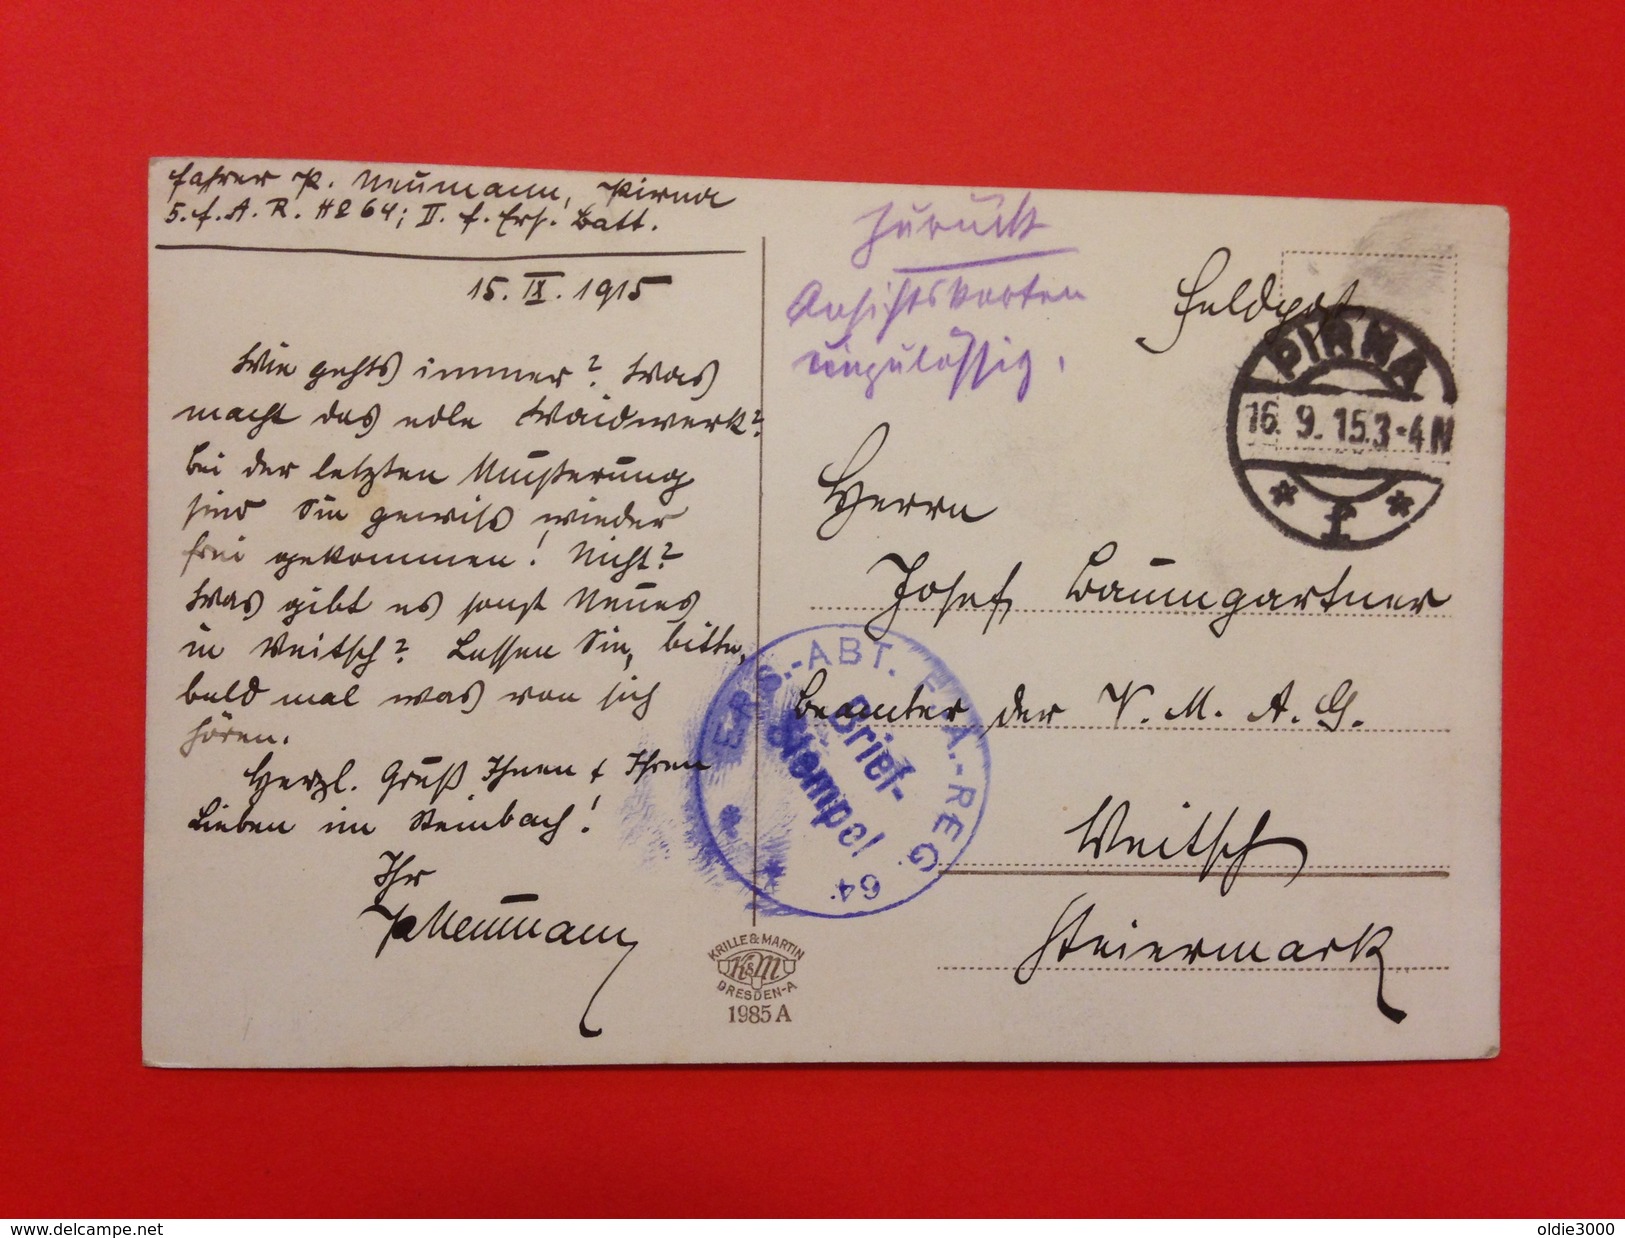 Fahrer P. Neumann, Pirna
5. F. A. R. No 64; II. F. Ers. Batt.
15. IX. 1915
Wie gehts immer? Was
macht das edle Waidwerk?
Bei der letzten Musterung
sind Sie gewiß wieder
frei gekommen! Nicht?
Was gibt es sonst Neues
in Veitsch? Lassen Sie, bitte,
bald mal was von sich
hören.
Herzl. Gruß Ihnen & Ihren
Lieben im Steinbach!
Ihr
PNeumann
Zurück
Ansichtskarten
unzulässig.
Feldpost
PIRNA
16. 9. 15. 3-4 N
* f *
Herrn
Josef Baumgartner
Beamter der V. M. A. G.
Veitsch
Steiermark
ERS.-ABT. F.A.-REG. 64.
Brief-
Stempel
KRILLE & MARTIN
K&M
DRESDEN-A
1985 A
www.delcampe.net
oldie3000